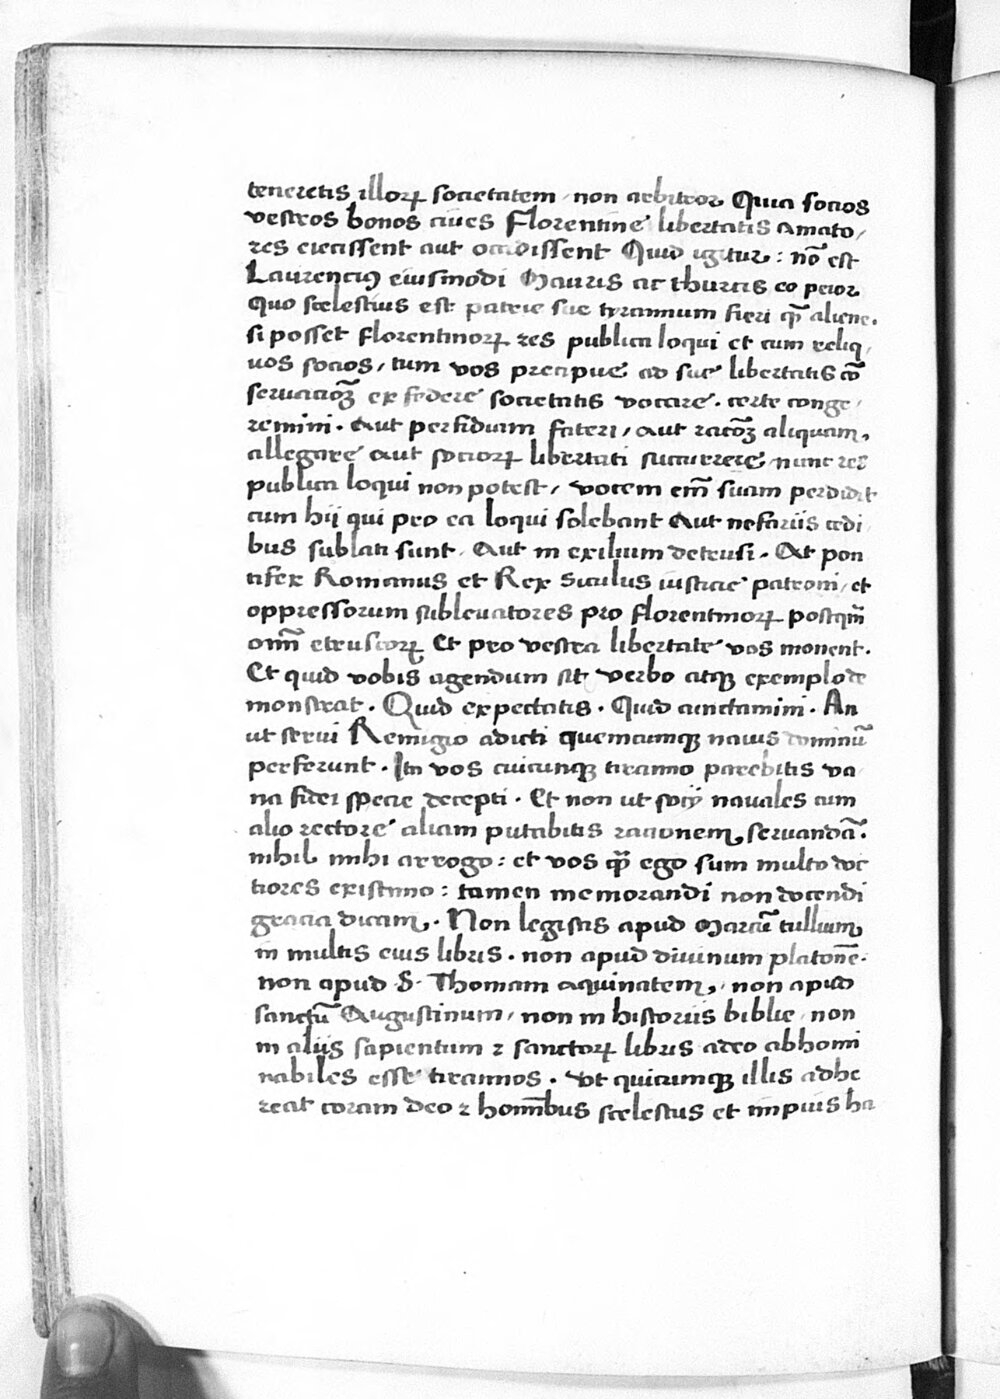 teneretis illoꝝ societatem non arbitror Quia socios
vestros bonos ciues Florentine libertatis amato/
res eiecissent aut occidissent Quid igitur : nō est
Laurencius eiusmodi Mauris ac thurcis eo peior
Quo scelestius est patrie sue tyrannum fieri qͣm aliene.
si posset florentinoꝝ res publica loqui et cum reliq/
uos socios / tum vos precipue ad sue libertatis cō
seruacioꝫ ex federe societatis vocare . certe conge/
remini . Aut perfidiam fateri / aut racōꝫ aliquam,
allegare aut socioꝝ libertati succurrere nunc res
publica loqui non potest / vocem em̄ suam perdidit
cum hij qui pro ea loqui solebant Aut nefariis cedi
bus sublati sunt . Aut in exilium detrusi . At pon
tifex Romanus et Rex Siculus iusticie patroni / et
oppressorum subleuatores pro florentinoꝝ postqm̄
omī etruscoꝝ Et pro vestra libertate vos monent.
Et quid vobis agendum sit verbo atqꝫ exemplo de
monstrat . Quid expectatis . Quid cunctamini . An
ut serui Remigio adicti quemcumqꝫ nauis dominū
perferunt . Ita vos cuicunqꝫ tiranno parebitis va
na fidei specie decepti . Et non ut socij nauales cum
alio rectore aliam putabitis racionem seruandā.
nihil mihi arrogo : et vos qͣm ego sum multo doc
tiores existimo : tamen memorandi non docendi
gracia dicam . Non legistis apud Marcū tullium
in multis eius libris . non apud diuinum platonē.
non apud S. Thomam aquinatem, non apud
sanctū Augustinum / non in historiis biblie non
in aliis sapientum ⁊ sanctoꝝ libris adeo abhomi
nabiles esse tirannos . Vt quicumqꝫ illis adhe
reat coram deo ⁊ homībus scelestus et impius ha